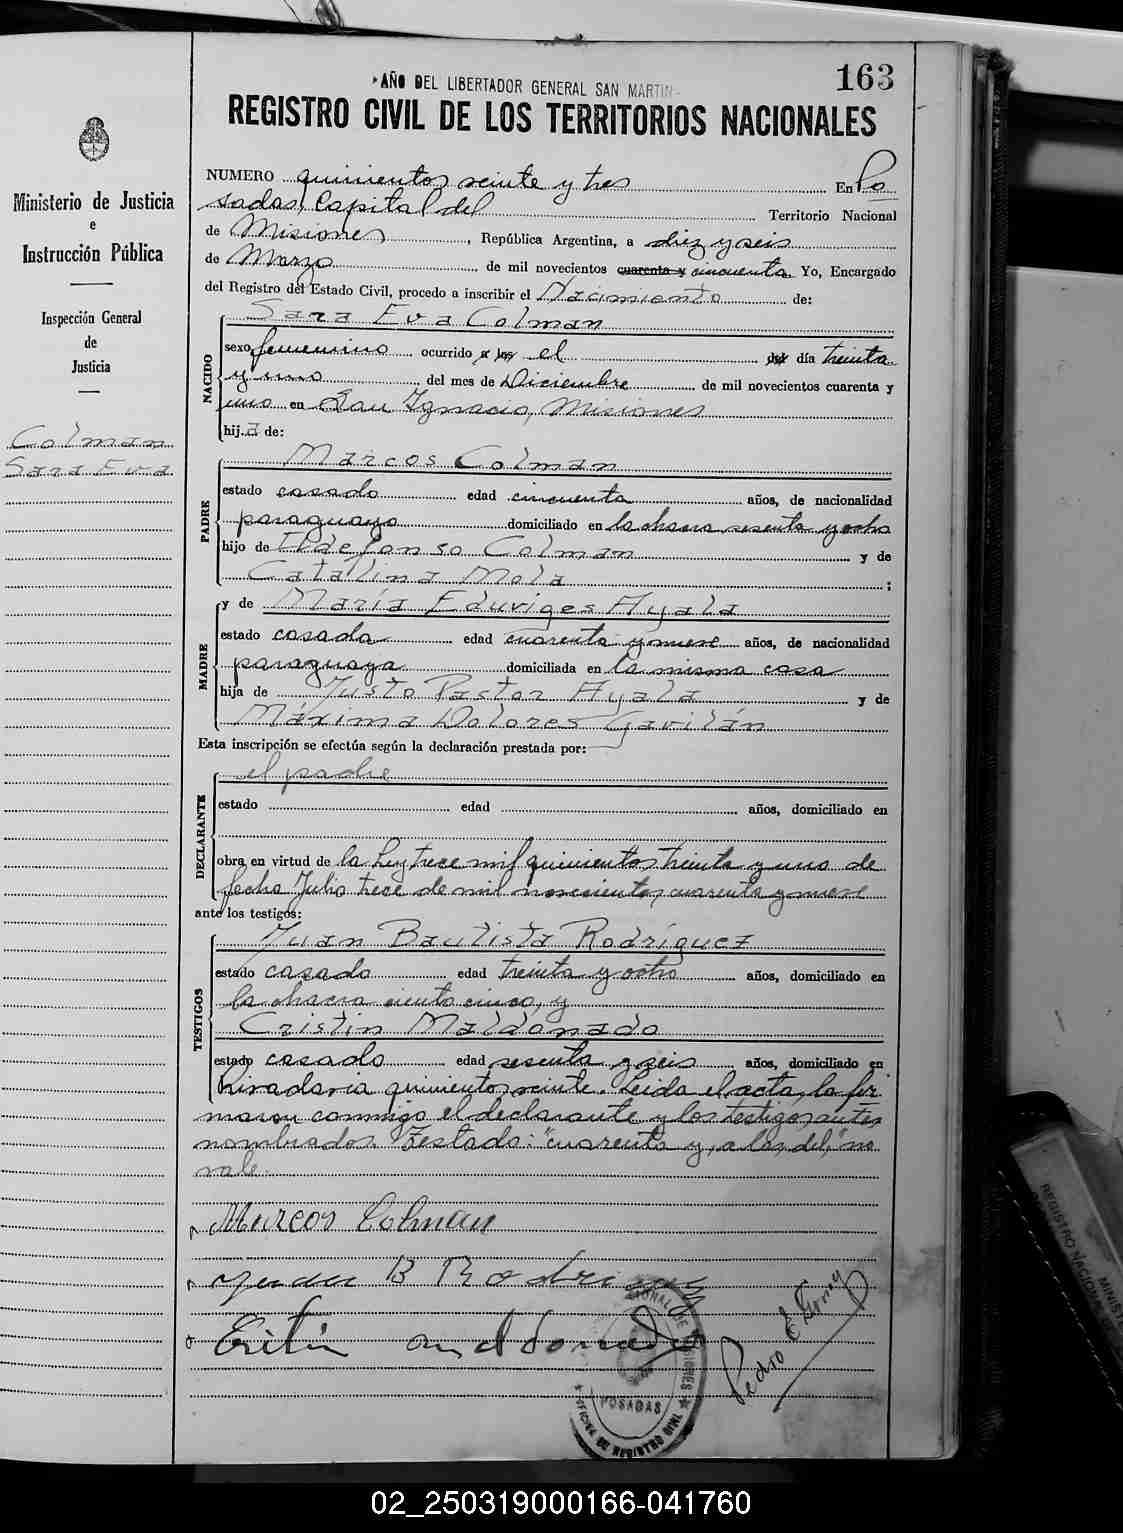 163
"AÑO DEL LIBERTADOR GENERAL SAN MARTIN"
REGISTRO CIVIL DE LOS TERRITORIOS NACIONALES
Ministerio de Justicia
e
Instrucción Pública
Inspección General
de
Justicia
Colman,
Sara Eva
NUMERO quinientos veinte y tres En Po
sadas, Capital del Territorio Nacional
de Misiones, República Argentina, a diez y seis
de Marzo de mil novecientos cuarenta y cincuenta Yo, Encargado
del Registro del Estado Civil, procedo a inscribir el Nacimiento de:
NACIDO
Sara Eva Colman
sexo femenino ocurrido a las el del día treinta
y uno del mes de Diciembre de mil novecientos cuarenta y
uno en San Ignacio, Misiones
hija de:
PADRE
Marcos Colman
estado casado edad cincuenta años, de nacionalidad
paraguayo domiciliado en la chacra sesenta y ocho
hijo de Ildefonso Colman y de
Catalina Mola ;
MADRE
y de María Eduviges Ayala
estado casada edad cuarenta y nueve años, de nacionalidad
paraguaya domiciliada en la misma casa
hija de Justo Pastor Ayala y de
Máxima Dolores Gavilán
Esta inscripción se efectúa según la declaración prestada por:
DECLARANTE
el padre
estado edad años, domiciliado en
obra en virtud de la Ley trece mil quinientos treinta y uno de
fecha Julio trece de mil novecientos cuarenta y nueve
ante los testigos:
TESTIGOS
Juan Bautista Rodríguez
estado casado edad treinta y ocho años, domiciliado en
la chacra ciento cinco, y
Cristin Maldonado
estado casado edad sesenta y seis años, domiciliado en
Rivadavia quinientos veinte. Leida el acta, la fir
maron conmigo el declarante y los testigos antes
nombrados. Testado: "cuarenta y, a las, del," no
vale.
Marcos Colman
Juan B Rodriguez
Critin Maldonado
Pedro E
POSADAS
OFICINA DE REGISTRO CIVIL
REGISTRO NACIONAL
MINISTE
02_250319000166-041760